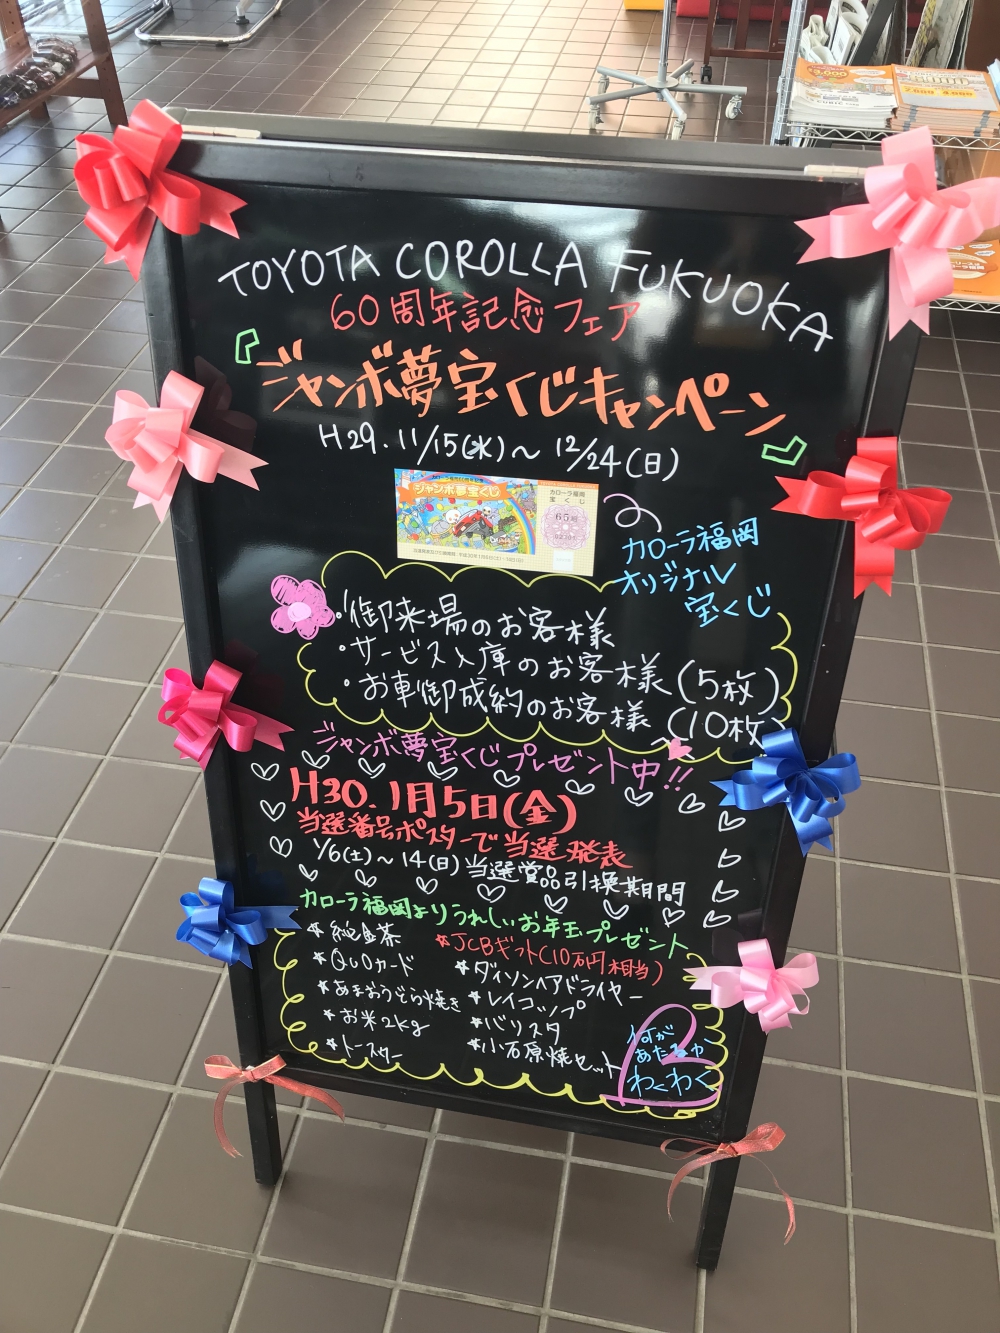 TOYOTA COROLLA FUKUOKA
60周年記念フェア
ジャンボ夢宝くじキャンペーン
H29.11/15(水)～12/24(日)
ジャンボ夢宝くじ
カローラ福岡
宝くじ
65組
カローラ福岡
オリジナル
宝くじ
・御来場のお客様
・サービス入庫のお客様(5枚)
・お車御成約のお客様(10枚)
ジャンボ夢宝くじプレゼント中!!
H30.1月5日(金)
当選番号ポスターで当選発表
1/6(土)～14(日)当選賞品引換期間
カローラ福岡よりうれしいお年玉プレゼント
★純金茶 ★JCBギフト(10万円相当)
★QUOカード ★ダイソンヘアドライヤー
★あまおうどら焼き ★レイコップ
★お米2kg ★バリスタ
★トースター ★小石原焼セット
何が
あたるか
わくわく